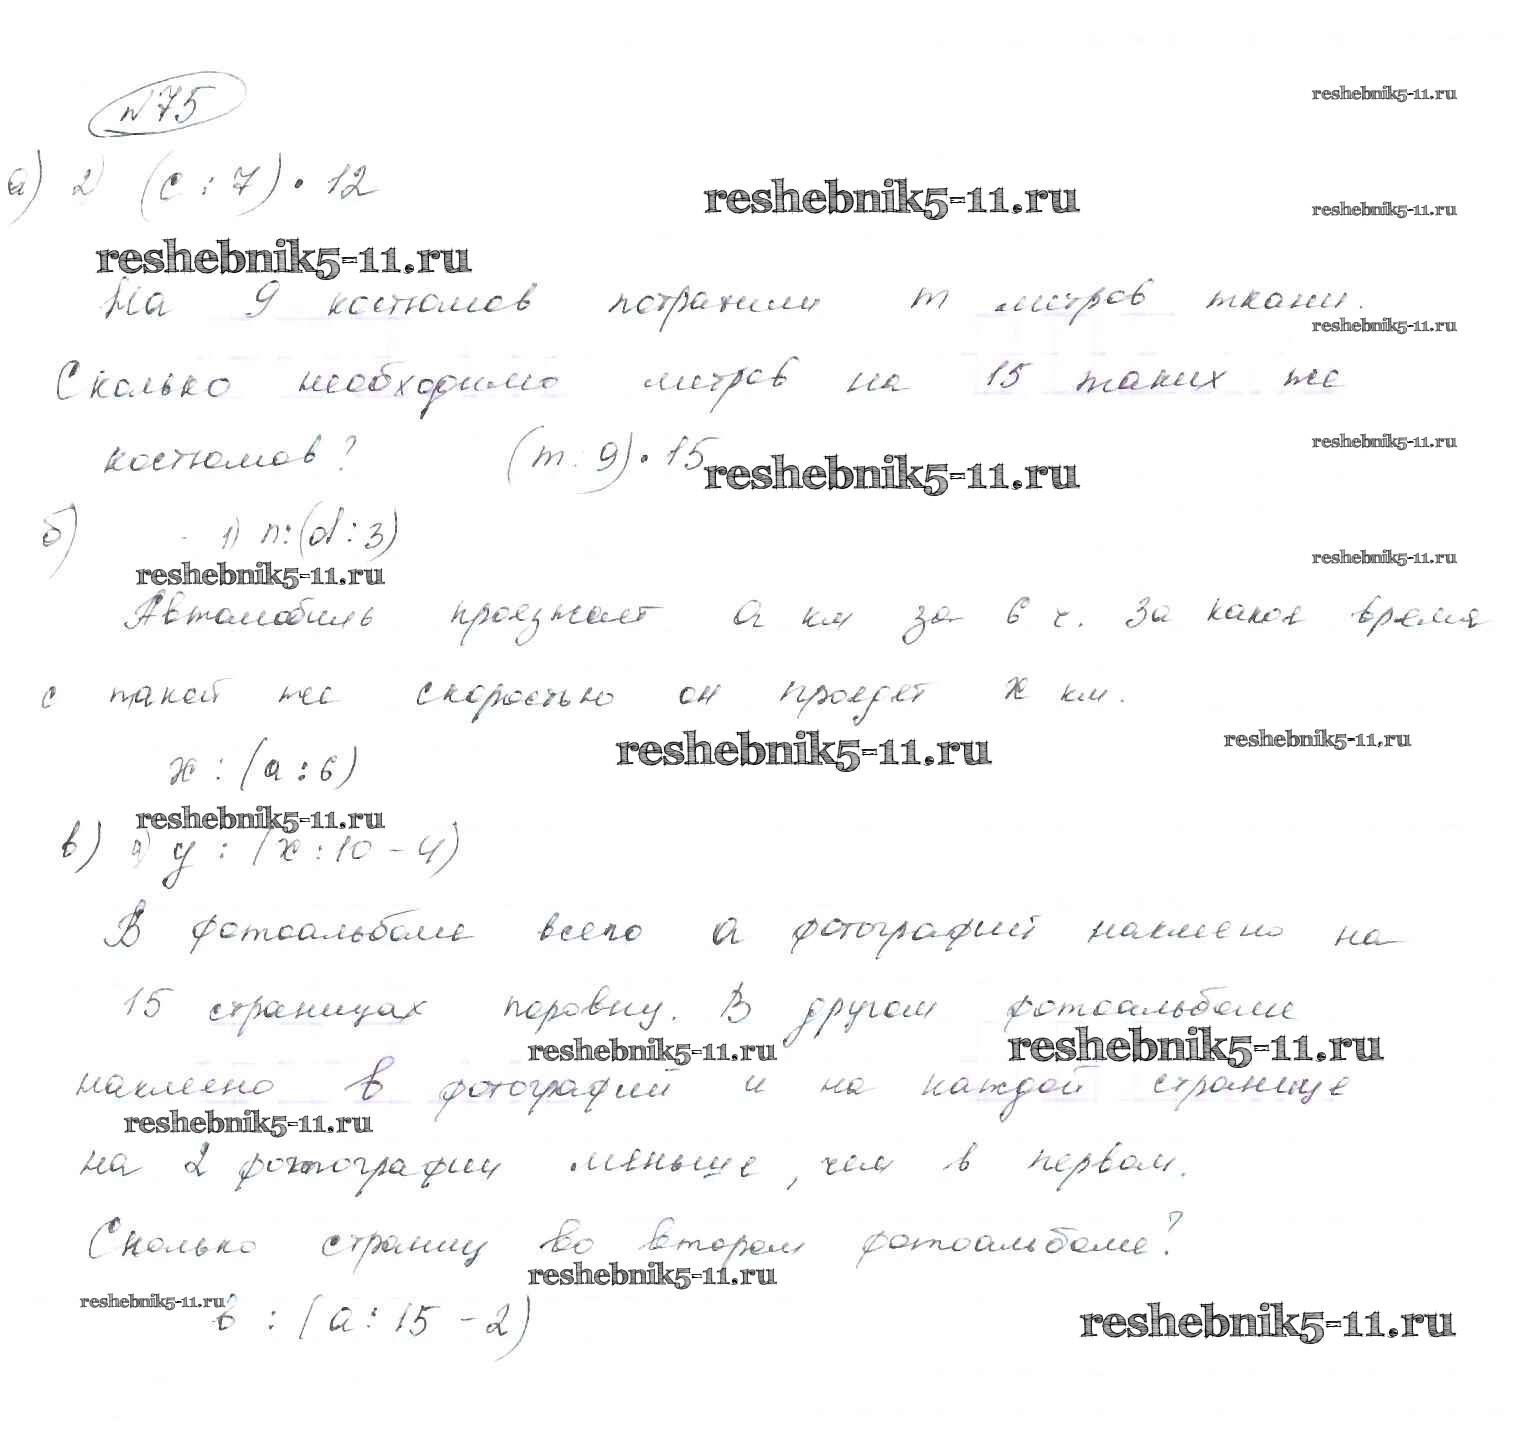 №75
reshebnik5-11.ru
а) 2) (c : 7) • 12
reshebnik5-11.ru
reshebnik5-11.ru
reshebnik5-11.ru
На 9 костюмов потратили m метров ткани.
reshebnik5-11.ru
Сколько необходимо метров на 15 таких же
reshebnik5-11.ru
костюмов? (m : 9) • 15
reshebnik5-11.ru
б) 1) n : (d : 3)
reshebnik5-11.ru
reshebnik5-11.ru
Автомобиль проезжает a км за 6 ч. За какое время
с такой же скоростью он проедет x км.
reshebnik5-11.ru
reshebnik5-11.ru
x : (a : 6)
reshebnik5-11.ru
в) y : (x : 10 - 4)
В фотоальбоме всего a фотографий наклеено на
15 страницах поровну. В другом фотоальбоме
reshebnik5-11.ru
reshebnik5-11.ru
наклеено b фотографий и на каждой странице
reshebnik5-11.ru
на 2 фотографии меньше, чем в первом.
Сколько страниц во втором фотоальбоме?
reshebnik5-11.ru
reshebnik5-11.ru
b : (a : 15 - 2)
reshebnik5-11.ru